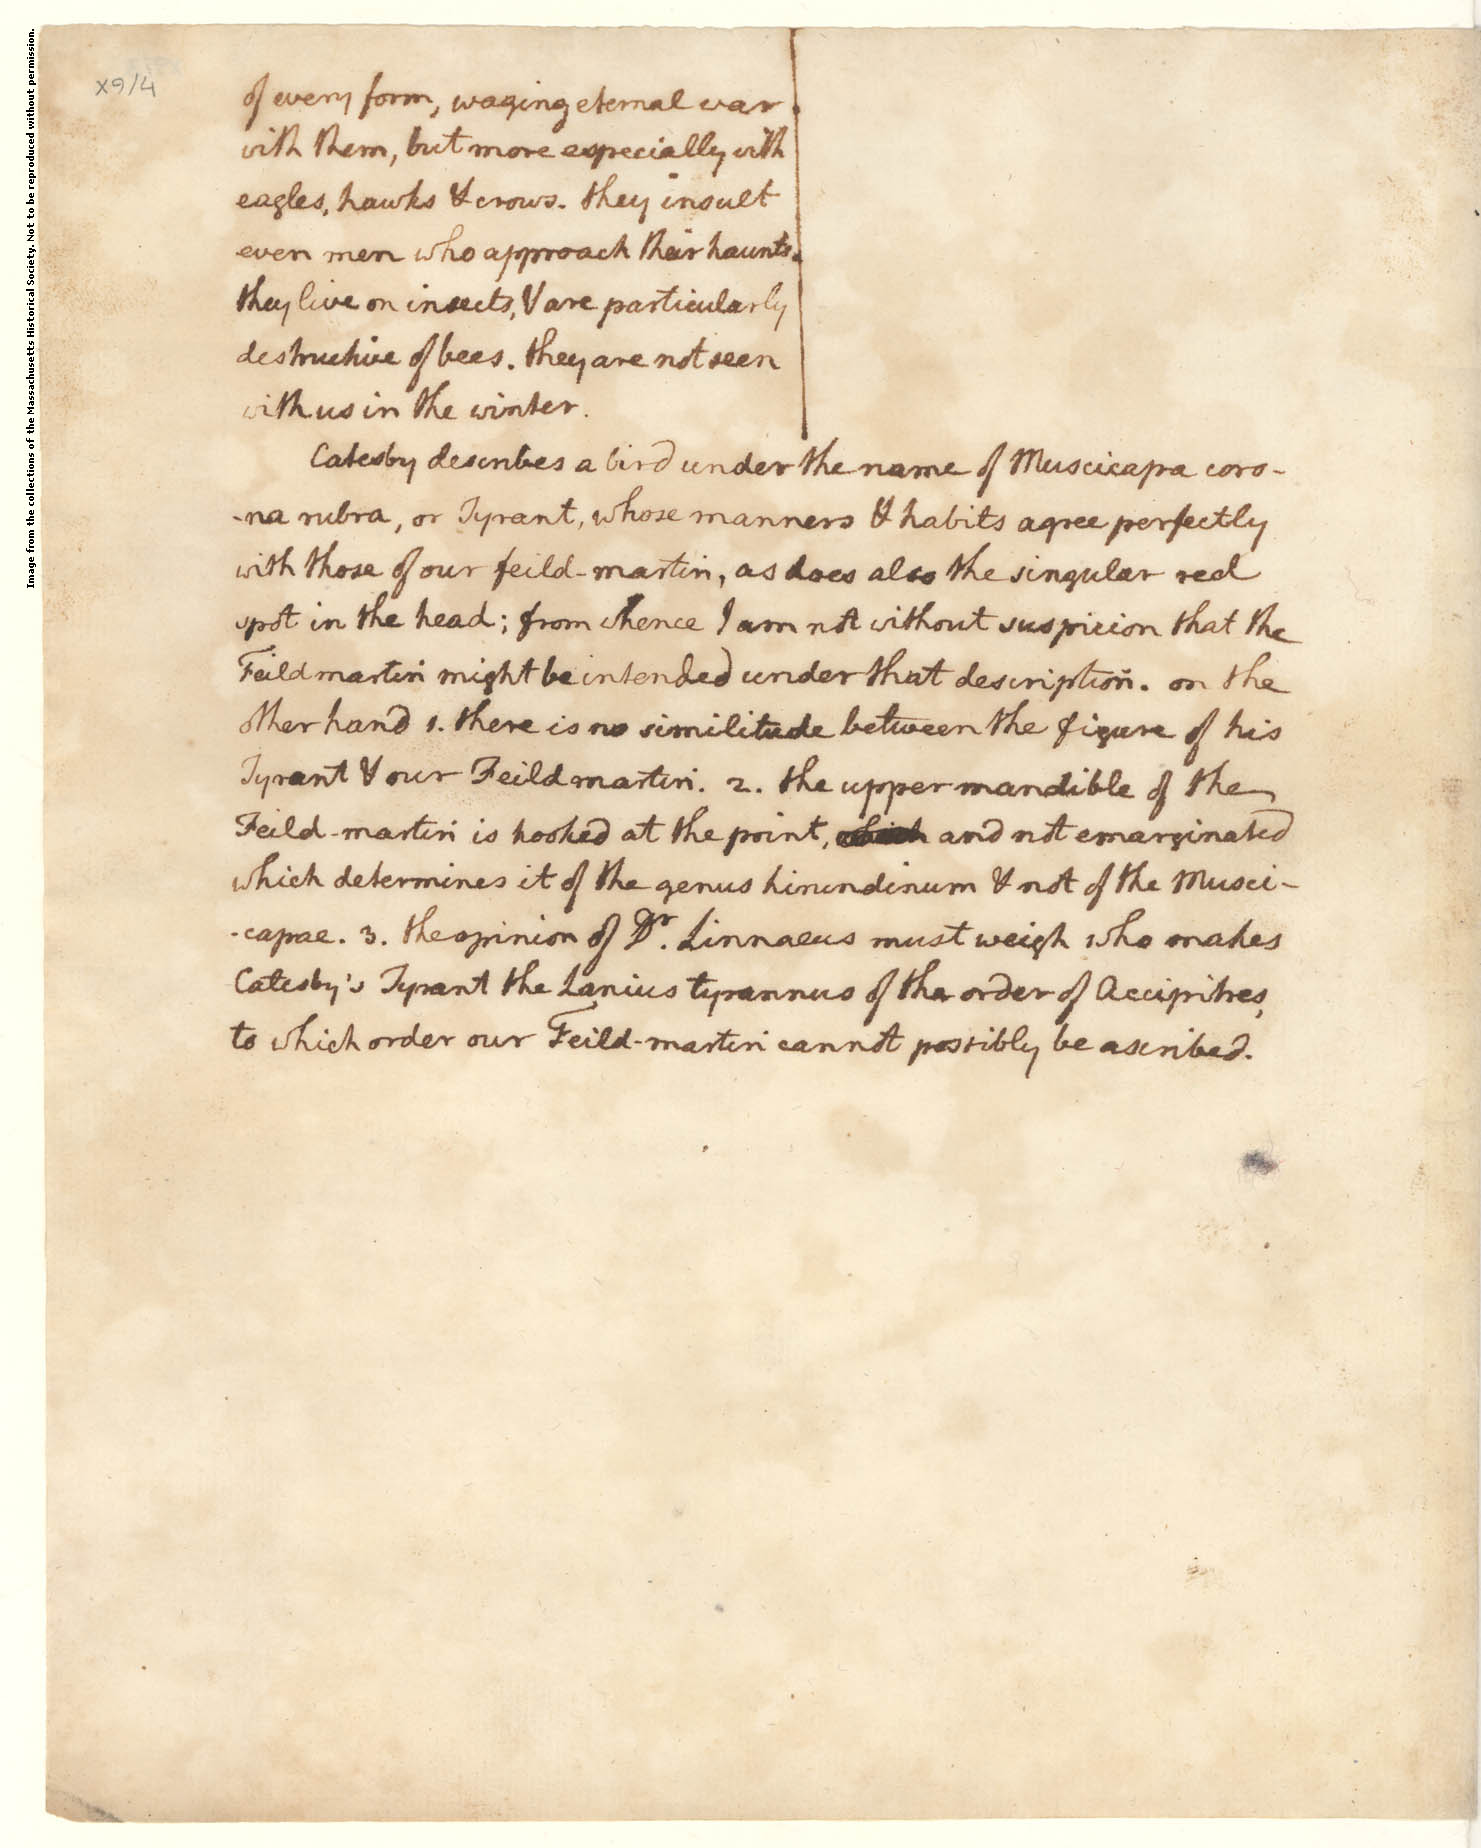 Image from the collections of the Massachusetts Historical Society. Not to be reproduced without permission.
x9/4
of every form, waging eternal war
with them, but more especially with
eagles, hawks & crows. they insult
even men who approach their haunts.
they live on insects, & are particularly
destructive of bees. they are not seen
with us in the winter.
Catesby describes a bird under the name of Muscicapa coro-
-na rubra, or Tyrant, whose manners & habits agree perfectly
with those of our feild-martin, as does also the singular red
spot in the head; from whence I am not without suspicion that the
Feildmartin might be intended under that description. on the
other hand 1. there is no similitude between the figure of his
Tyrant & our Feildmartin. 2. the upper mandible of the
Feild-martin is hooked at the point, which and not emarginated
which determines it of the genus hirundinum & not of the Musci-
-capae. 3. the opinion of Dr. Linnaeus must weigh who makes
Catesby's Tyrant the Lanius tyrannus of the order of Accipitres,
to which order our Feild-martin cannot possibly be ascribed.